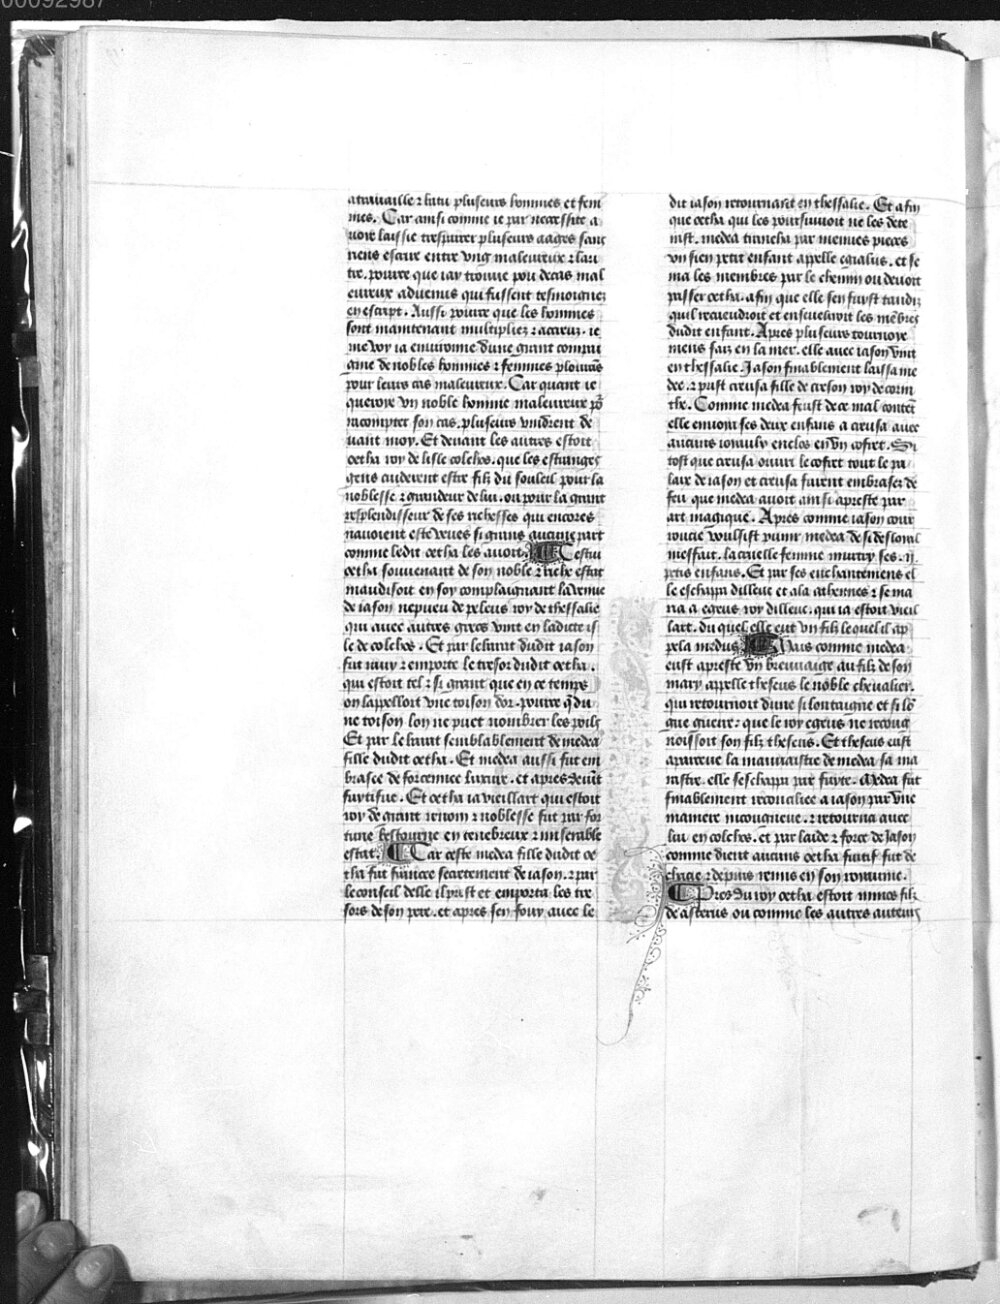 00092987
atravaille ⁊ batu pluseurs hommes et fem
mes. Car ainsi comme ie par necessite a
uoie laissie trespasser pluseurs aages sans
riens escrire entre vng maleureux ⁊ lau
tre. pource que iay trouue pou de cas mal
eureux aduenus qui fussent tesmoignez
en escript. Aussi pource que les hommes
sont maintenant multipliez ⁊ acreuz. ie
me voy ia enuironne dune grant compai
gnie de nobles hommes ⁊ femmes plourãs
pour leurs cas maleureux. Car quant ie
queroye vn noble homme maleureux po
racompter son cas. pluseurs vindrent de
uant moy. Et deuant les autres estoit
oetha roy de lisle colchos. que les estranges
gens cuiderent estre filz du souleil pour la
noblesse ⁊ grandeur de lui. ou pour la grant
resplendisseur de ses richesses qui encores
nauoient este veues si grans aucune part
comme ledit oetha les auoit. Cestui
oetha souuenant de son noble ⁊ riche estat
maudisoit en soy complaignant la venue
de iason nepueu de peleus roy de thessalie
qui auec autres grecs vint en ladicte is
le de colchos. Et par lequel dudit iason
fut rauy ⁊ emporte le tresor dudit oetha.
qui estoit tel ⁊ si grant que en ce temps
on lappelloit vne toison dor. pource q̃ du
ne toison lon ne puet nombrer les poilz
Et par lequel semblablement de medea
fille dudit oetha. Et medea aussi fut em
brasee de forcennee luxure. et apres deuĩt
fuytifue. Et oetha ia vieillart qui estoit
roy de grant renom ⁊ noblesse fut par for
tune bestournee en tenebreux ⁊ miserable
estat. Car ceste medea fille dudit oe
tha fut fiancee secretement de iason. ⁊ par
le conseil delle il prist et emporta les tre
sors de son pere. et apres sen fouy auec le
dit iason retournant en thessalie. Et afin
que oetha qui les poursuiuoit ne les dete
nist. medea trancha par menues pieces
vn sien petit enfant apelle egialus. et se
ma les membres par le chemin ou deuoit
passer oetha. afin que elle sen fuyst tandiz
quil recueudroit et enseueliroit les mẽbres
dudit enfant. Apres pluseurs tournoye
mens faiz en la mer. elle auec iason vint
en thessalie. Iason finablement laissa me
dee. ⁊ prist creusa fille de creson roy de corin
the. Comme medea feust de ce mal contẽt
elle enuoia ses deux enfans a creusa auec
aucuns ioyaulx enclos en vn cofret. Si
tost que creusa ouuri le cofret tout le pa
laix de iason et creusa furent embrasez de
feu que medea auoit ainsi apreste par
art magique. Apres comme iason cour
roucie voulsist punir medea de si desloial
meffait. la cruelle femme murtry ses .ij.
petis enfans. Et par ses enchantemens el
le eschappa dilleuc et ala athennes ⁊ se ma
ria a egeus roy dilleuc. qui ia estoit vieil
lart. du quel elle eut vn filz lequel il ap
pela medus. Mais comme medea
eust apreste vn breuuaige au filz de son
mary appelle theseus le noble cheualier.
qui retournoit dune si lointaigne et si lõ
gue guerre: que le roy egeus ne recong
noissoit son filz theseus. Et theseus eust
aparceue la mauuaistie de medea sa ma
rastre. elle seschappa par fuyte. Medea fut
finablement reconciliee a iason par vne
maniere incongneue. ⁊ retourna auec
lui en colchos. et par laide ⁊ force de Iason
comme dient aucuns oetha fuitif fut de
chacie ⁊ depuis remis en son royaume.
Pres du roy oetha estoit minos filz
de asterius ou comme les autres auteurs